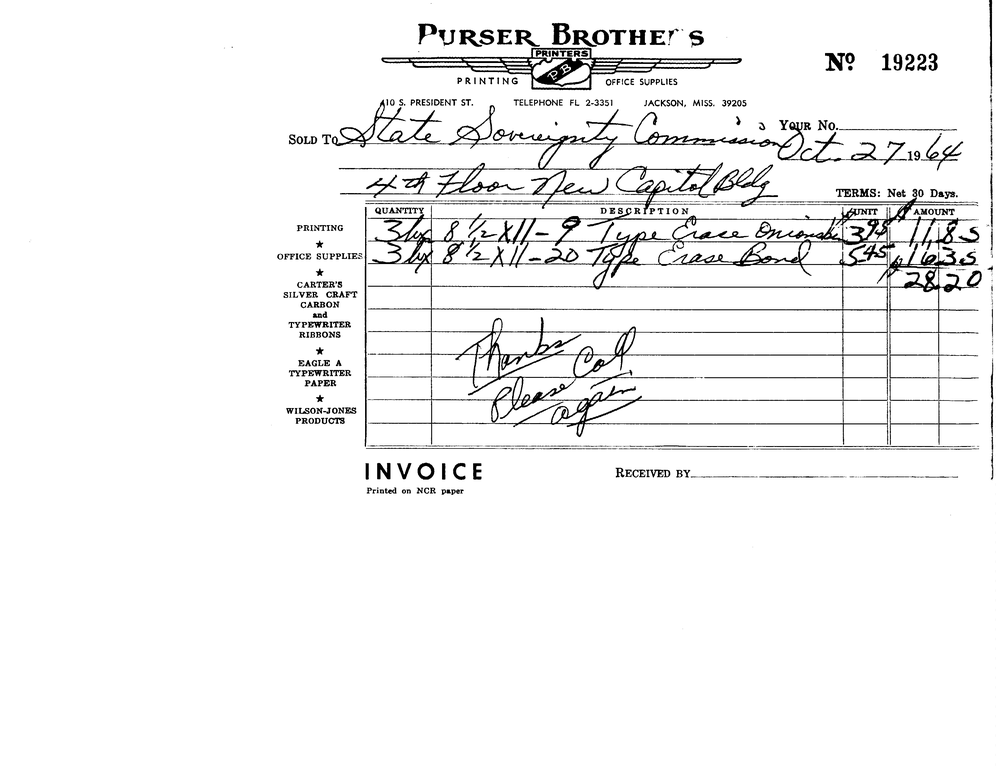 PURSER BROTHERS
PRINTERS
PB
PRINTING OFFICE SUPPLIES
No 19223
410 S. PRESIDENT ST. TELEPHONE FL 2-3351 JACKSON, MISS. 39205
YOUR NO.
SOLD TO State Sovereignty Commission Oct. 27 1964
4th Floor New Capitol Bldg
TERMS: Net 30 Days.
QUANTITY DESCRIPTION UNIT AMOUNT
3 bx 8 1/2 X 11 - 9 Type Erase Onionskin 3.95 $ 11.85
3 bx 8 1/2 X 11 - 20 Type Erase Bond 5.45 16.35
28.20
PRINTING
★
OFFICE SUPPLIES
★
CARTER'S
SILVER CRAFT
CARBON
and
TYPEWRITER
RIBBONS
★
EAGLE A
TYPEWRITER
PAPER
★
WILSON-JONES
PRODUCTS
Thanks
Please Call
again
INVOICE
RECEIVED BY
Printed on NCR paper